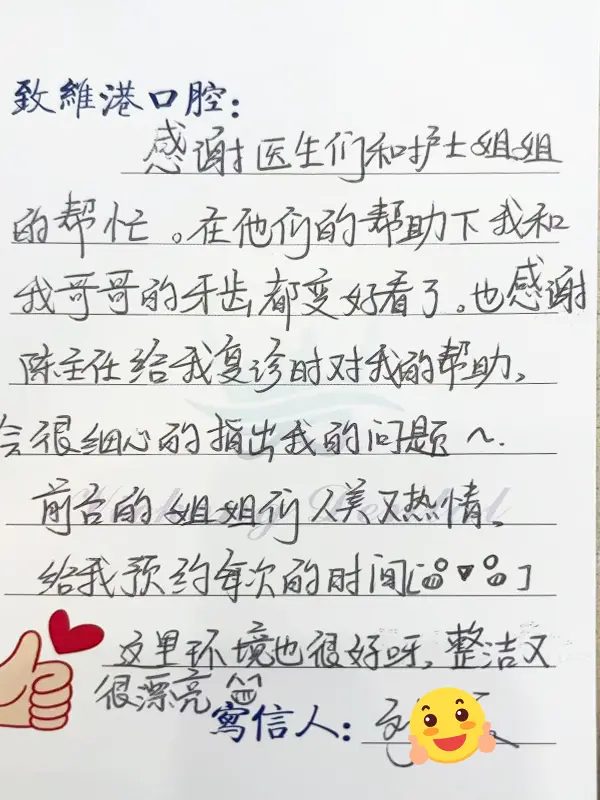 致維港口腔：
感谢医生们和护士姐姐
的帮忙。在他们的帮助下我和
我哥哥的牙齿都变好看了。也感谢
陈主任给我复诊时对我的帮助、
会很细心的指出我的问题～.
前台的姐姐们人美又热情、
给我预约每次的时间
这里环境也很好呀、整洁又
很漂亮
寫信人：